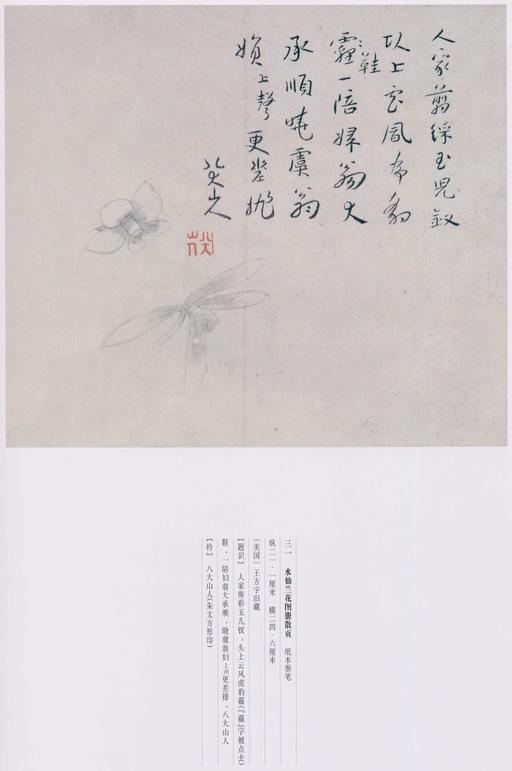 人家剪綵玉兒釵
頭上雲風虎豹
霾鞋一陪婦翁大
承順曉虞翁
媍上聲更差排
八大山人
三一 水仙兰花图册散页 纸本墨笔
纵二二·一厘米 横二四·六厘米
〔美国〕王方宇旧藏
【题识】 人家剪彩玉儿钗，头上云风虎豹霾(“霾”字被点去)
鞋，一陪妇翁大承顺，晓虞翁妇上声更差排，八大山人
【钤】 八大山人(朱文方形印)